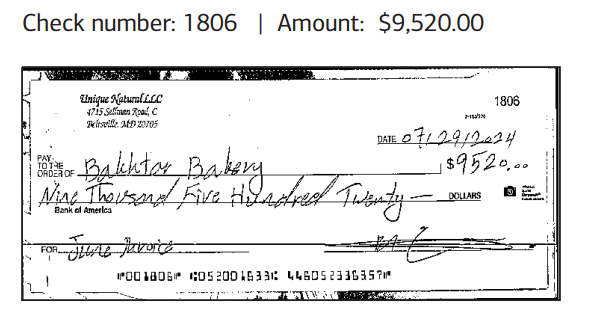 Check number: 1806 | Amount: $9,520.00
Unique Natural LLC
4715 Sellman Road, C
Beltsville, MD 20705
1806
DATE 07/29/2024
PAY TO THE ORDER OF Bakhtar Bakery $9520.00
Nine Thousand Five Hundred Twenty — DOLLARS
Bank of America
FOR June Invoice